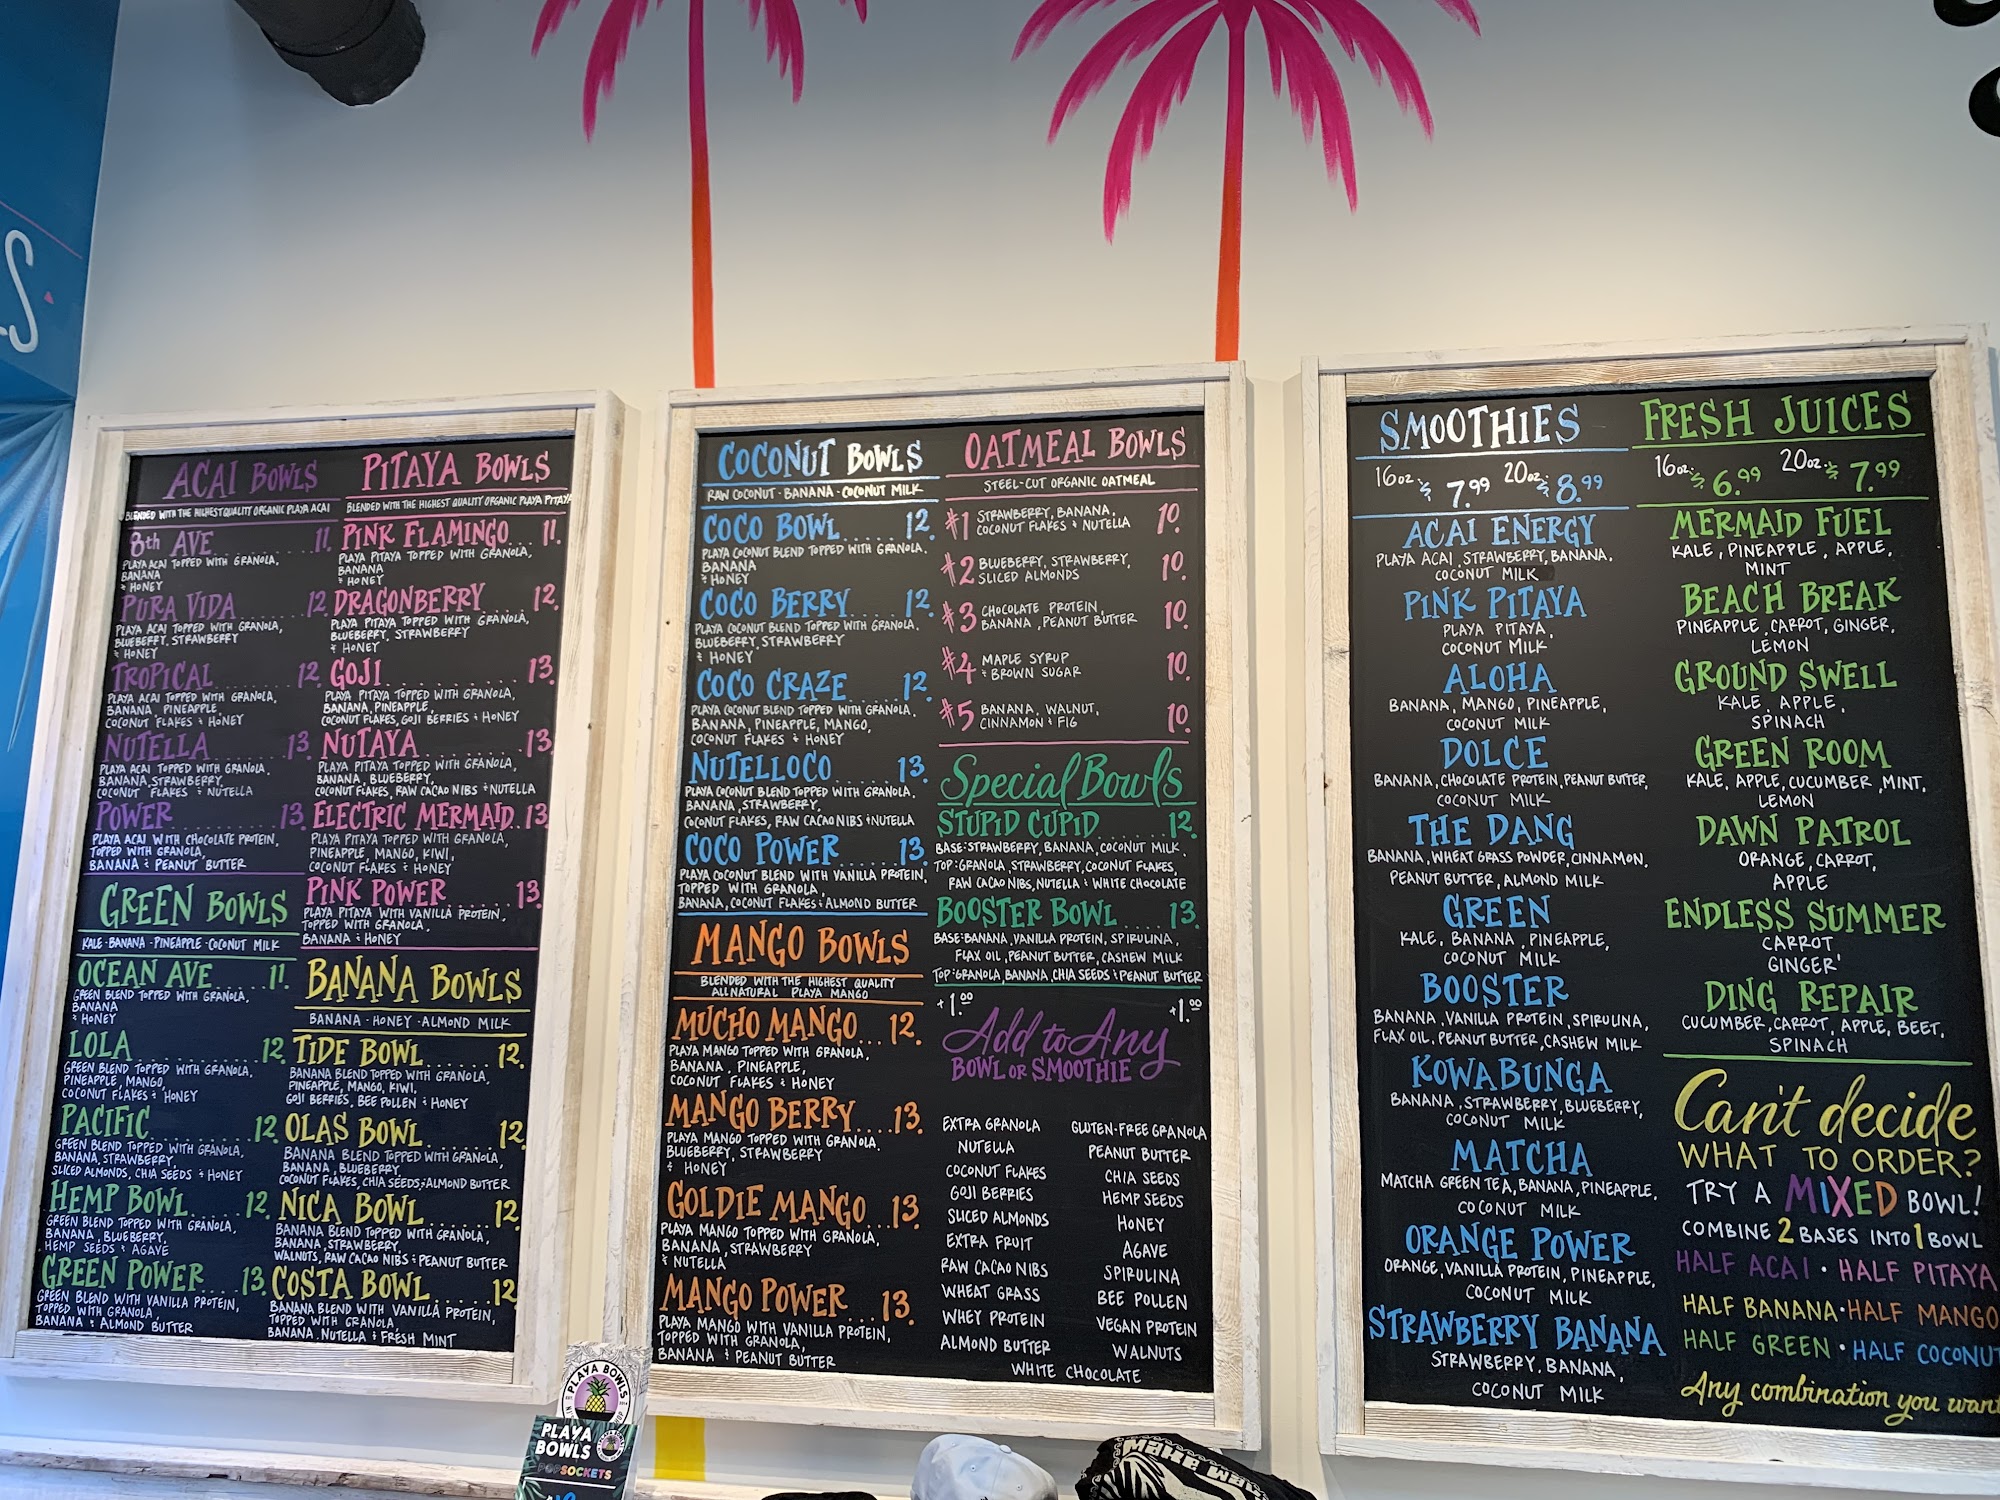 S
ACAI BOWLS
BLENDED WITH THE HIGHEST QUALITY ORGANIC PLAYA ACAI
8th AVE 11.
PLAYA ACAI TOPPED WITH GRANOLA,
BANANA
+ HONEY
PURA VIDA 12.
PLAYA ACAI TOPPED WITH GRANOLA,
BLUEBERRY, STRAWBERRY
+ HONEY
TROPICAL 12.
PLAYA ACAI TOPPED WITH GRANOLA,
BANANA, PINEAPPLE,
COCONUT FLAKES + HONEY
NUTELLA 13.
PLAYA ACAI TOPPED WITH GRANOLA,
BANANA, STRAWBERRY,
COCONUT FLAKES + NUTELLA
POWER 13.
PLAYA ACAI WITH CHOCOLATE PROTEIN,
TOPPED WITH GRANOLA,
BANANA + PEANUT BUTTER
GREEN BOWLS
KALE · BANANA · PINEAPPLE · COCONUT MILK
OCEAN AVE 11.
GREEN BLEND TOPPED WITH GRANOLA,
BANANA
+ HONEY
LOLA 12.
GREEN BLEND TOPPED WITH GRANOLA,
PINEAPPLE, MANGO,
COCONUT FLAKES + HONEY
PACIFIC 12.
GREEN BLEND TOPPED WITH GRANOLA,
BANANA, STRAWBERRY,
SLICED ALMONDS, CHIA SEEDS + HONEY
HEMP BOWL 12.
GREEN BLEND TOPPED WITH GRANOLA,
BANANA, BLUEBERRY,
HEMP SEEDS + AGAVE
GREEN POWER 13.
GREEN BLEND WITH VANILLA PROTEIN,
TOPPED WITH GRANOLA,
BANANA + ALMOND BUTTER
PITAYA BOWLS
BLENDED WITH THE HIGHEST QUALITY ORGANIC PLAYA PITAYA
PINK FLAMINGO 11.
PLAYA PITAYA TOPPED WITH GRANOLA,
BANANA
+ HONEY
DRAGONBERRY 12.
PLAYA PITAYA TOPPED WITH GRANOLA,
BLUEBERRY, STRAWBERRY
+ HONEY
GOJI 13.
PLAYA PITAYA TOPPED WITH GRANOLA,
BANANA, PINEAPPLE,
COCONUT FLAKES, GOJI BERRIES + HONEY
NUTAYA 13.
PLAYA PITAYA TOPPED WITH GRANOLA,
BANANA, BLUEBERRY,
COCONUT FLAKES, RAW CACAO NIBS + NUTELLA
ELECTRIC MERMAID 13.
PLAYA PITAYA TOPPED WITH GRANOLA,
PINEAPPLE, MANGO, KIWI,
COCONUT FLAKES + HONEY
PINK POWER 13.
PLAYA PITAYA WITH VANILLA PROTEIN,
TOPPED WITH GRANOLA,
BANANA + HONEY
BANANA BOWLS
BANANA · HONEY · ALMOND MILK
TIDE BOWL 12.
BANANA BLEND TOPPED WITH GRANOLA,
PINEAPPLE, MANGO, KIWI,
GOJI BERRIES, BEE POLLEN + HONEY
OLAS BOWL 12.
BANANA BLEND TOPPED WITH GRANOLA,
BANANA, BLUEBERRY,
COCONUT FLAKES, CHIA SEEDS + ALMOND BUTTER
NICA BOWL 12.
BANANA BLEND TOPPED WITH GRANOLA,
BANANA, STRAWBERRY,
WALNUTS, RAW CACAO NIBS + PEANUT BUTTER
COSTA BOWL 12.
BANANA BLEND WITH VANILLA PROTEIN,
TOPPED WITH GRANOLA,
BANANA, NUTELLA + FRESH MINT
COCONUT BOWLS
RAW COCONUT · BANANA · COCONUT MILK
COCO BOWL 12.
PLAYA COCONUT BLEND TOPPED WITH GRANOLA,
BANANA
+ HONEY
COCO BERRY 12.
PLAYA COCONUT BLEND TOPPED WITH GRANOLA,
BLUEBERRY, STRAWBERRY
+ HONEY
COCO CRAZE 12.
PLAYA COCONUT BLEND TOPPED WITH GRANOLA,
BANANA, PINEAPPLE, MANGO,
COCONUT FLAKES + HONEY
NUTELLOCO 13.
PLAYA COCONUT BLEND TOPPED WITH GRANOLA,
BANANA, STRAWBERRY,
COCONUT FLAKES, RAW CACAO NIBS + NUTELLA
COCO POWER 13.
PLAYA COCONUT BLEND WITH VANILLA PROTEIN,
TOPPED WITH GRANOLA,
BANANA, COCONUT FLAKES + ALMOND BUTTER
MANGO BOWLS
BLENDED WITH THE HIGHEST QUALITY
ALL NATURAL PLAYA MANGO
MUCHO MANGO 12.
PLAYA MANGO TOPPED WITH GRANOLA,
BANANA, PINEAPPLE,
COCONUT FLAKES + HONEY
MANGO BERRY 13.
PLAYA MANGO TOPPED WITH GRANOLA,
BLUEBERRY, STRAWBERRY
+ HONEY
GOLDIE MANGO 13.
PLAYA MANGO TOPPED WITH GRANOLA,
BANANA, STRAWBERRY
+ NUTELLA
MANGO POWER 13.
PLAYA MANGO WITH VANILLA PROTEIN,
TOPPED WITH GRANOLA,
BANANA + PEANUT BUTTER
OATMEAL BOWLS
STEEL-CUT ORGANIC OATMEAL
#1 STRAWBERRY, BANANA,
COCONUT FLAKES + NUTELLA 10.
#2 BLUEBERRY, STRAWBERRY,
SLICED ALMONDS 10.
#3 CHOCOLATE PROTEIN,
BANANA, PEANUT BUTTER 10.
#4 MAPLE SYRUP
+ BROWN SUGAR 10.
#5 BANANA, WALNUT,
CINNAMON + FIG 10.
Special Bowls
STUPID CUPID 12.
BASE: STRAWBERRY, BANANA, COCONUT MILK.
TOP: GRANOLA, STRAWBERRY, COCONUT FLAKES,
RAW CACAO NIBS, NUTELLA + WHITE CHOCOLATE
BOOSTER BOWL 13.
BASE: BANANA, VANILLA PROTEIN, SPIRULINA,
FLAX OIL, PEANUT BUTTER, CASHEW MILK
TOP: GRANOLA, BANANA, CHIA SEEDS + PEANUT BUTTER
+1.00 +1.00
Add to Any
BOWL OR SMOOTHIE
EXTRA GRANOLA
NUTELLA
COCONUT FLAKES
GOJI BERRIES
SLICED ALMONDS
EXTRA FRUIT
RAW CACAO NIBS
WHEAT GRASS
WHEY PROTEIN
ALMOND BUTTER
GLUTEN-FREE GRANOLA
PEANUT BUTTER
CHIA SEEDS
HEMP SEEDS
HONEY
AGAVE
SPIRULINA
BEE POLLEN
VEGAN PROTEIN
WALNUTS
WHITE CHOCOLATE
SMOOTHIES
16oz. $7.99 20oz. $8.99
ACAI ENERGY
PLAYA ACAI, STRAWBERRY, BANANA,
COCONUT MILK
PINK PITAYA
PLAYA PITAYA,
COCONUT MILK
ALOHA
BANANA, MANGO, PINEAPPLE,
COCONUT MILK
DOLCE
BANANA, CHOCOLATE PROTEIN, PEANUT BUTTER,
COCONUT MILK
THE DANG
BANANA, WHEAT GRASS POWDER, CINNAMON,
PEANUT BUTTER, ALMOND MILK
GREEN
KALE, BANANA, PINEAPPLE,
COCONUT MILK
BOOSTER
BANANA, VANILLA PROTEIN, SPIRULINA,
FLAX OIL, PEANUT BUTTER, CASHEW MILK
KOWABUNGA
BANANA, STRAWBERRY, BLUEBERRY,
COCONUT MILK
MATCHA
MATCHA GREEN TEA, BANANA, PINEAPPLE,
COCONUT MILK
ORANGE POWER
ORANGE, VANILLA PROTEIN, PINEAPPLE,
COCONUT MILK
STRAWBERRY BANANA
STRAWBERRY, BANANA,
COCONUT MILK
FRESH JUICES
16oz. $6.99 20oz. $7.99
MERMAID FUEL
KALE, PINEAPPLE, APPLE,
MINT
BEACH BREAK
PINEAPPLE, CARROT, GINGER,
LEMON
GROUND SWELL
KALE, APPLE,
SPINACH
GREEN ROOM
KALE, APPLE, CUCUMBER, MINT,
LEMON
DAWN PATROL
ORANGE, CARROT,
APPLE
ENDLESS SUMMER
CARROT
GINGER
DING REPAIR
CUCUMBER, CARROT, APPLE, BEET,
SPINACH
Can't decide
WHAT TO ORDER?
TRY A MIXED BOWL!
COMBINE 2 BASES INTO 1 BOWL
HALF ACAI · HALF PITAYA
HALF BANANA · HALF MANGO
HALF GREEN · HALF COCONUT
Any combination you want
PLAYA BOWLS
PLAYA
BOWLS
POPSOCKETS